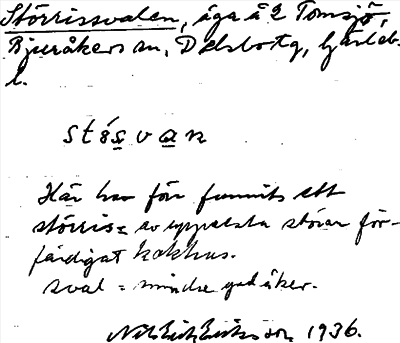 Störrissvalen, äga å 2 Tomsjö,
Bjuråkers sn, Delsbo tg, Gävleb.
l.
stósvan
Här har förr funnits ett
störris= av uppresta störar för-
färdigat kokhus.
sval = mindre god åker.
Nils Erik Eriksson 1936.